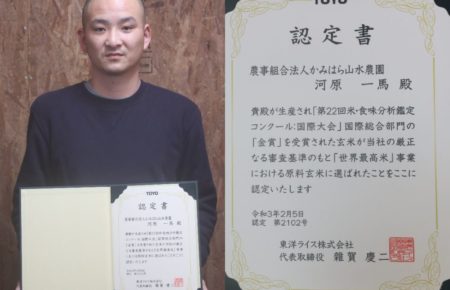 TOYO
認定書
農事組合法人かみはら山水農園
河原 一馬 殿
貴殿が生産され「第22回米・食味分析鑑定
コンクール:国際大会」国際総合部門の
「金賞」を受賞された玄米が当社の厳正
なる審査基準のもと「世界最高米」事業
における原料玄米に選ばれたことをここに
認定いたします
令和3年2月5日
認定 第2102号
東洋ライス株式会社
代表取締役 雜賀 慶二
TOYO
認定書
農事組合法人かみはら山水農園
河原 一馬 殿